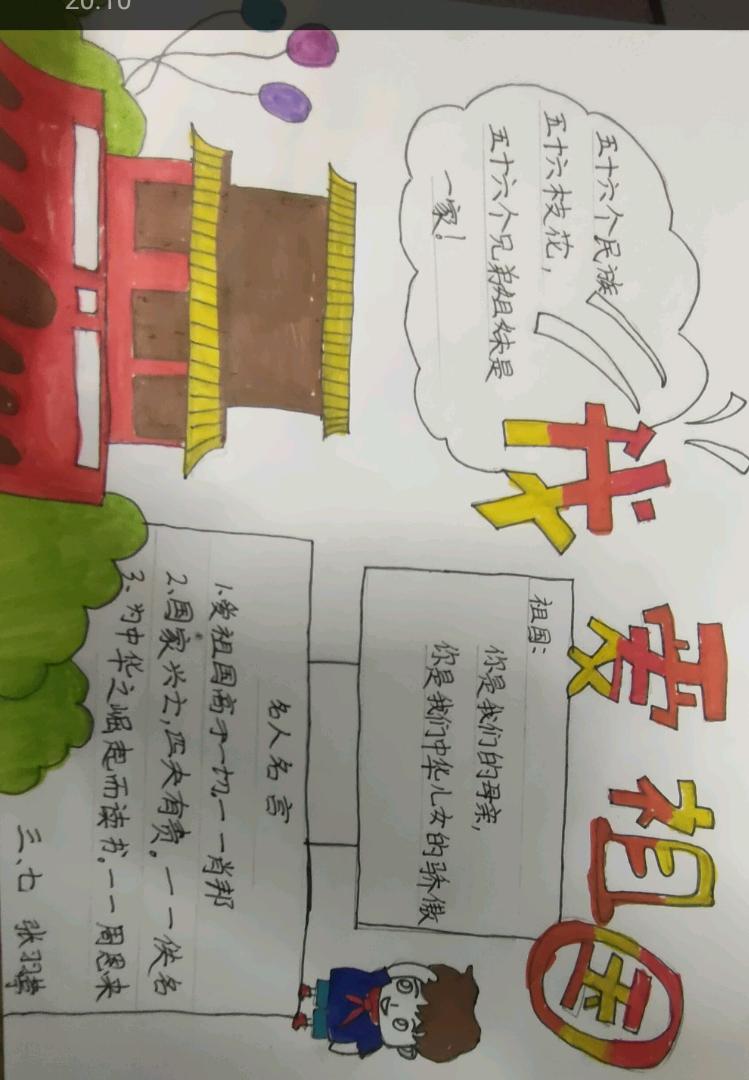 20:10
我爱祖国
五十六个民族
五十六枝花，
五十六个兄弟姐妹是
一家！
祖国：
你是我们的母亲，
你是我们中华儿女的骄傲
名人名言
1.爱祖国高于一切一一肖邦
2.国家兴亡，匹夫有责。一一佚名
3、为中华之崛起而读书。一一周恩来
三、七 张羽